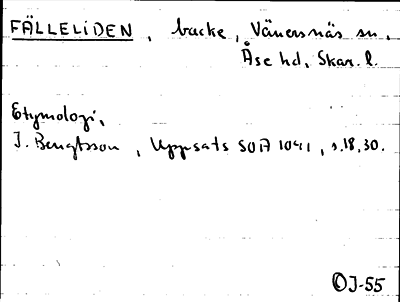 FÄLLELIDEN, backe, Vänersnäs sn,
Åse hd, Skar. l.
Etymologi,
J. Bengtsson, Uppsats SOA 1041, s. 18, 30.
OJ-55